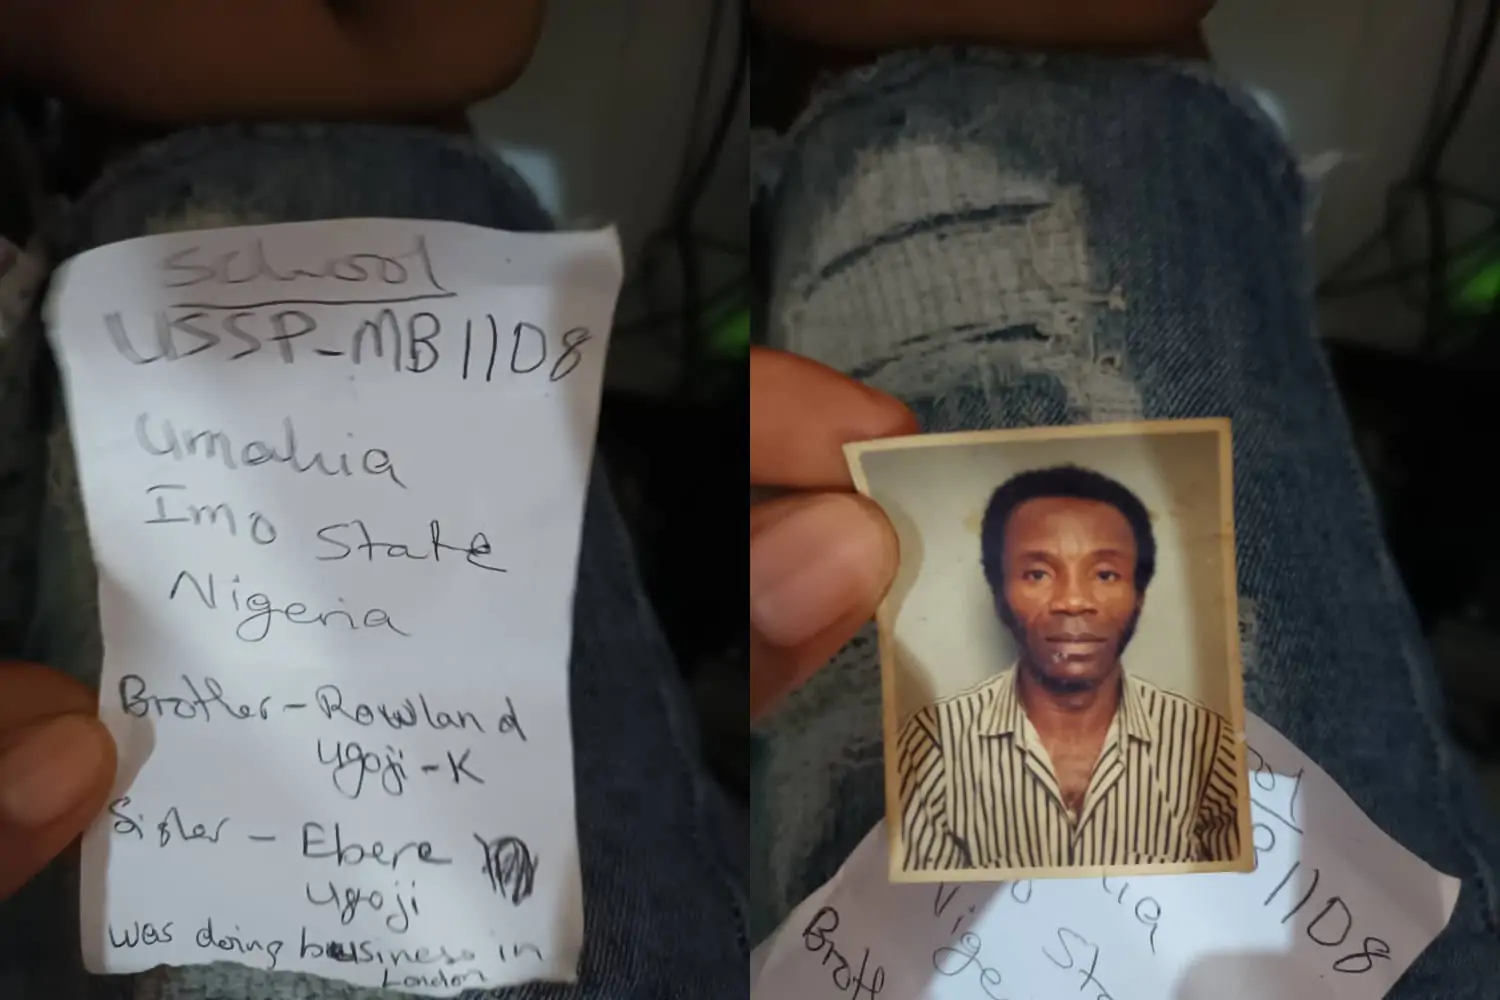 School
USSP-MB1108
Umahia
Imo State
Nigeria
Brother - Rowland
Ugoji - K
Sister - Ebere
Ugoji
was doing business in
London
1108
Nige
Sta
Broth